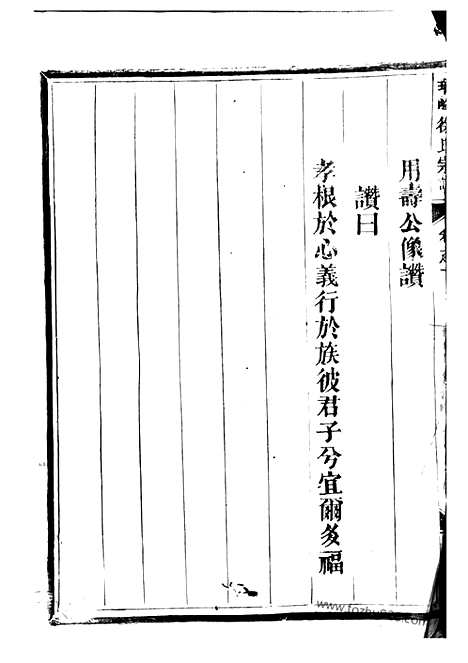 徐氏宗譜
用壽公像讚
讚曰
孝根於心義行於族彼君子兮宜爾多福